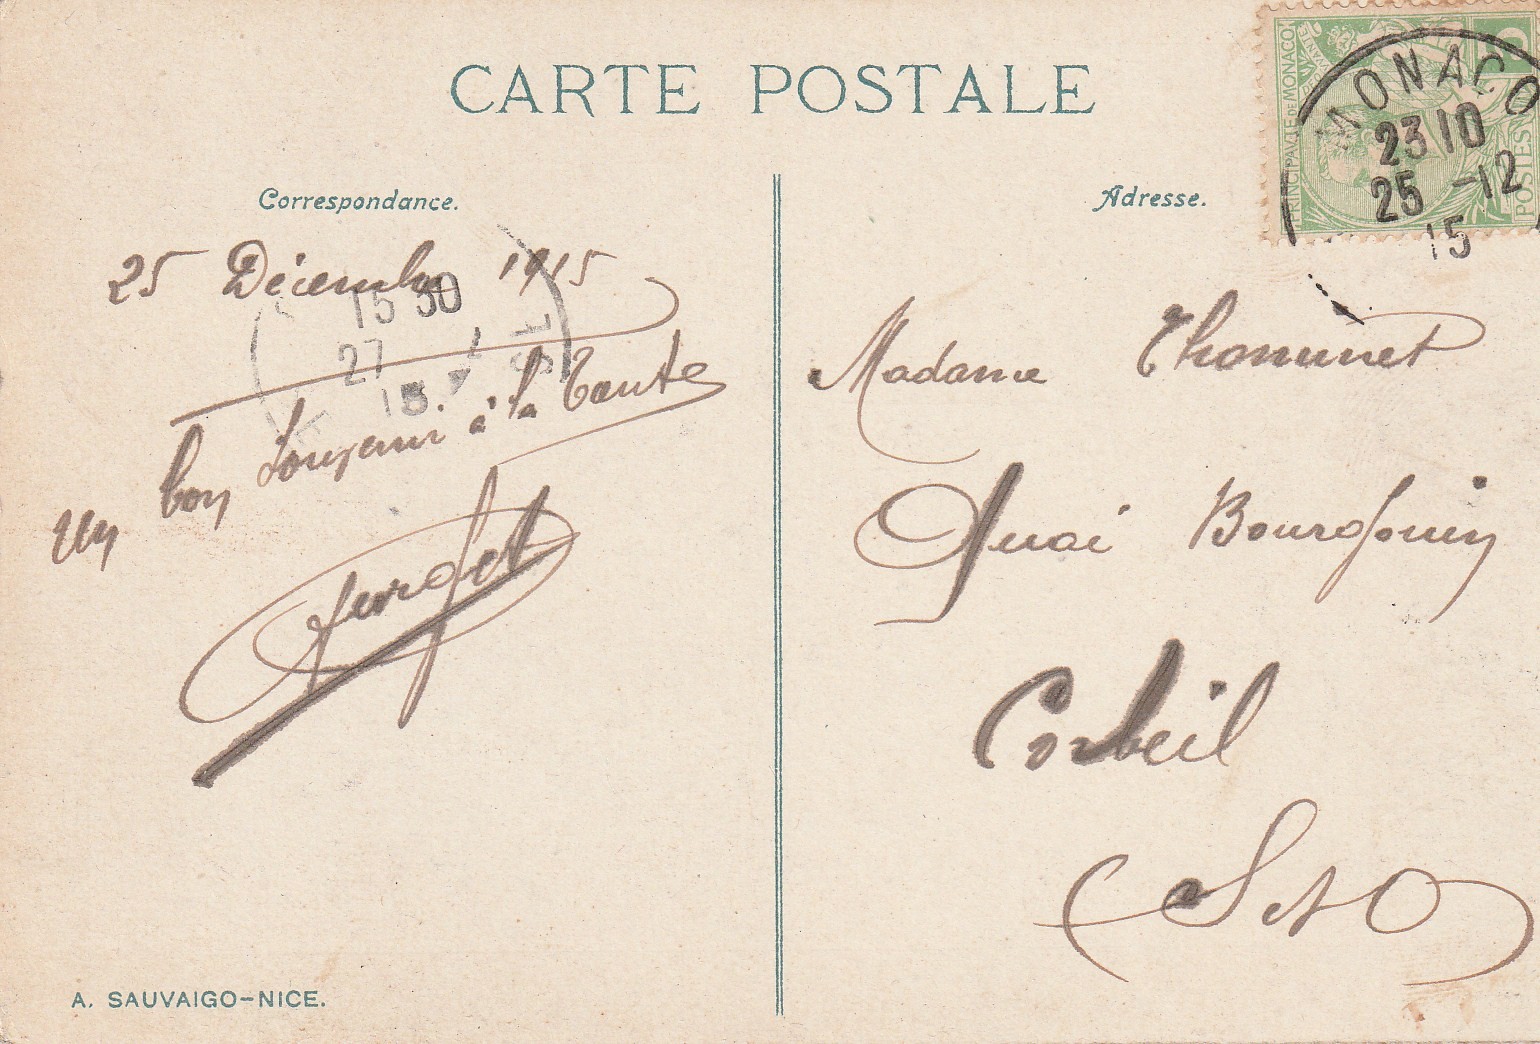 CARTE POSTALE
Correspondance.
Adresse.
PRINCIPAUTÉ DE MONACO
POSTES
5
MONACO
23 10
25 -12
15
25 Décembre 1915
15 30
27
15
Un bon Souvenir à la Tante
Madame Thommet
Quai Bourgouin
Corbeil
S et O
A. SAUVAIGO-NICE.